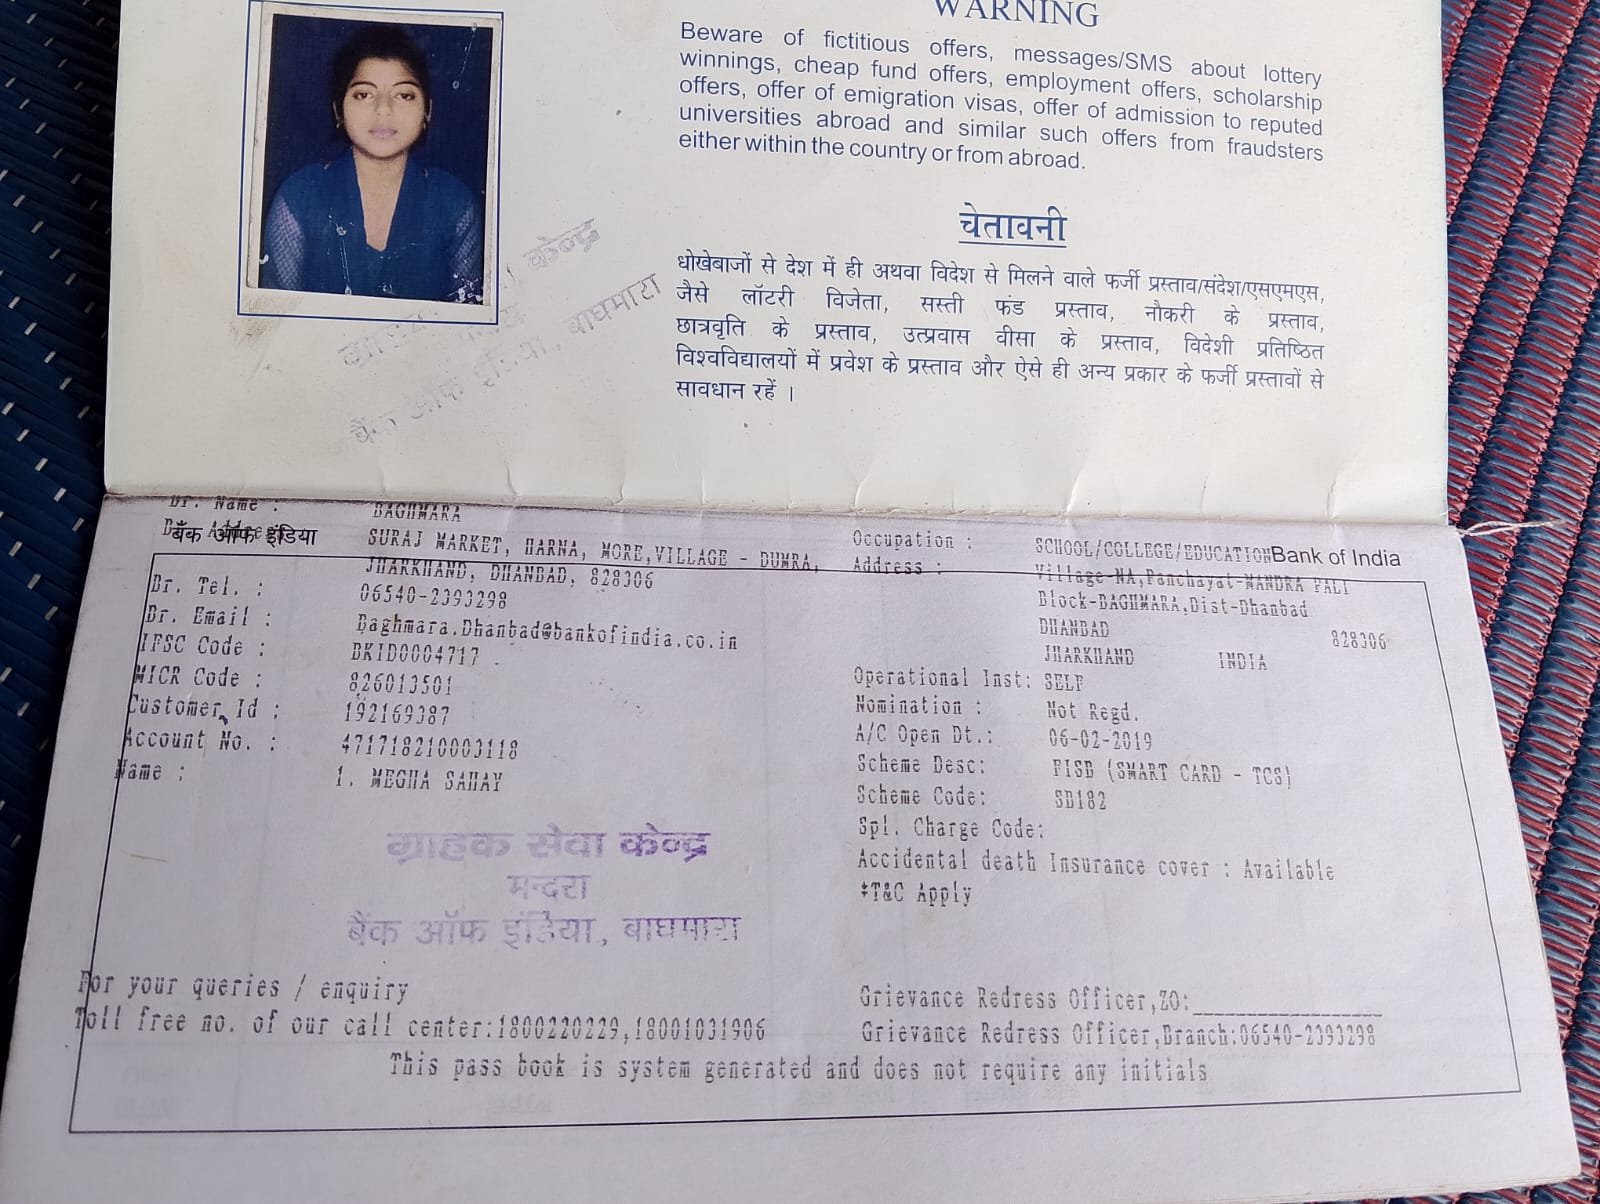 WARNING
Beware of fictitious offers, messages/SMS about lottery
winnings, cheap fund offers, employment offers, scholarship
offers, offer of emigration visas, offer of admission to reputed
universities abroad and similar such offers from fraudsters
either within the country or from abroad.
चेतावनी
धोखेबाजों से देश में ही अथवा विदेश से मिलने वाले फर्जी प्रस्ताव/संदेश/एसएमएस,
जैसे लॉटरी विजेता, सस्ती फंड प्रस्ताव, नौकरी के प्रस्ताव,
छात्रवृति के प्रस्ताव, उत्प्रवास वीसा के प्रस्ताव, विदेशी प्रतिष्ठित
विश्वविद्यालयों में प्रवेश के प्रस्ताव और ऐसे ही अन्य प्रकार के फर्जी प्रस्तावों से
सावधान रहें ।
केन्द्र
बैंक ऑफ इंडिया, बाघमारा
Br. Name : BAGHMARA
बैंक ऑफ इंडिया
Bank of India
SURAJ MARKET, HARNA, MORE,VILLAGE - DUMRA,
JHARKHAND, DHANBAD, 828306
Br. Tel. : 06540-2393298
Br. Email : Baghmara.Dhanbad@bankofindia.co.in
IFSC Code : BKID0004717
MICR Code : 826013501
Customer Id : 192169387
Account No. : 471718210003118
Name : 1. MEGHA SAHAY
Occupation : SCHOOL/COLLEGE/EDUCATION
Address : Village-NA,Panchayat-MANDRA PALI
Block-BAGHMARA,Dist-Dhanbad
DHANBAD 828306
JHARKHAND INDIA
Operational Inst: SELF
Nomination : Not Regd.
A/C Open Dt.: 06-02-2019
Scheme Desc: FISB (SMART CARD - TCS)
Scheme Code: SB182
Spl. Charge Code:
Accidental death Insurance cover : Available
*T&C Apply
ग्राहक सेवा केन्द्र
मन्दरा
बैंक ऑफ इंडिया, बाघमारा
For your queries / enquiry
Toll free no. of our call center:1800220229,18001031906
Grievance Redress Officer,ZO:
Grievance Redress Officer,Branch:06540-2393298
This pass book is system generated and does not require any initials